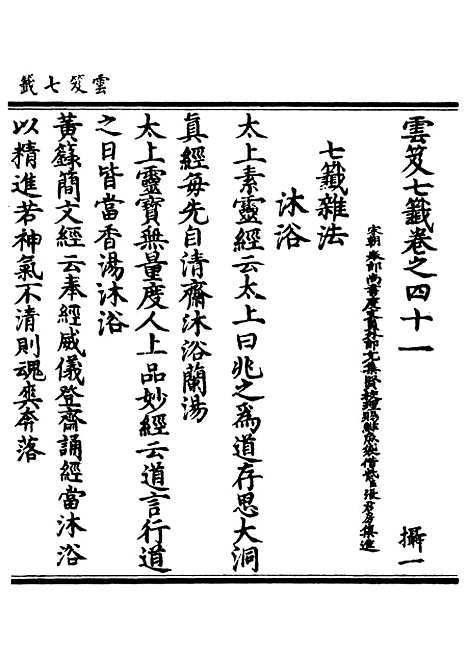 雲笈七籤
雲笈七籤卷之四十一 攝一
宋朝奉郎尚書度支員外郎充集賢校理賜緋魚袋借紫臣張君房集進
七籤雜法
沐浴
太上素靈經云太上曰兆之為道存思大洞
真經每先自清齋沐浴蘭湯
太上靈寶無量度人上品妙經云道言行道
之日皆當香湯沐浴
黃籙簡文經云奉經威儀登齋誦經當沐浴
以精進若神氣不清則魂爽奔落